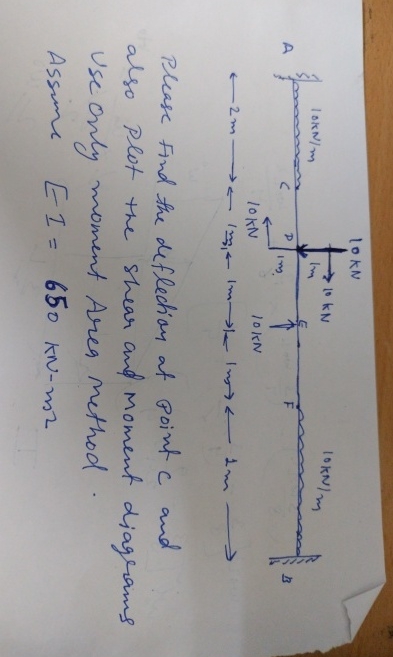 10 KN
10 KN
10KN/m
1m
10KN/m
A
C
D
E
F
B
1m
10KN
10KN
← 2m → ← 1m → ← 1m → ← 1m → ← 2m →
Please Find the deflection at Point C and
also Plot the Shear and Moment diagrams
Use Only moment Area method.
Assume EI = 650 KN-m2